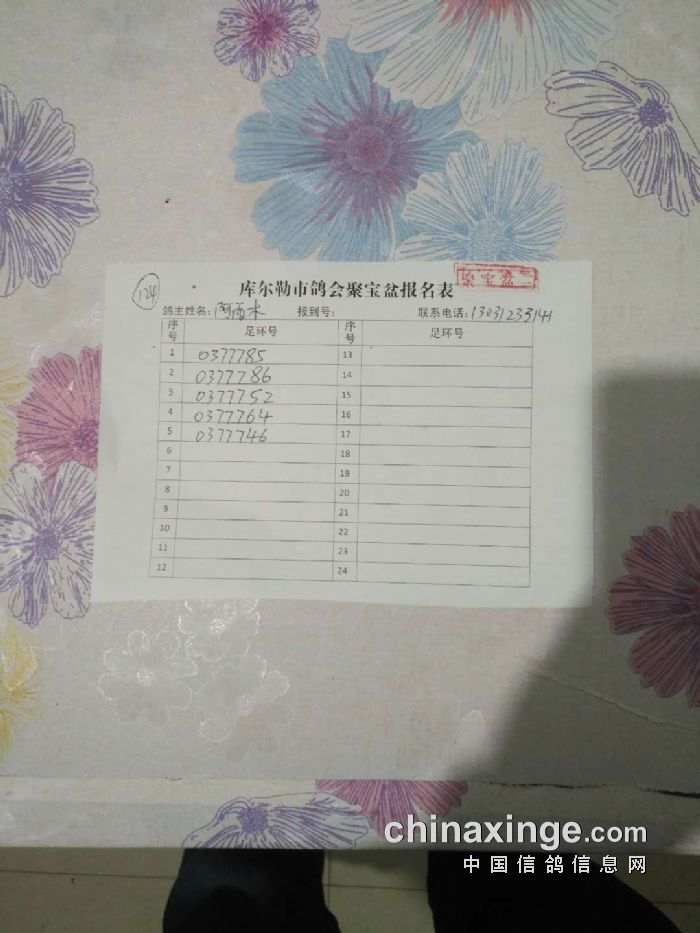 124
库尔勒市鸽会聚宝盆报名表
聚宝盆二
鸽主姓名: 阿西木 报到号: 联系电话: 13031233141
序号 足环号 序号 足环号
1 0377785 13
2 0377786 14
3 0377752 15
4 0377764 16
5 0377746 17
6 18
7 19
8 20
9 21
10 22
11 23
12 24
chinaxinge.com
中国信鸽信息网